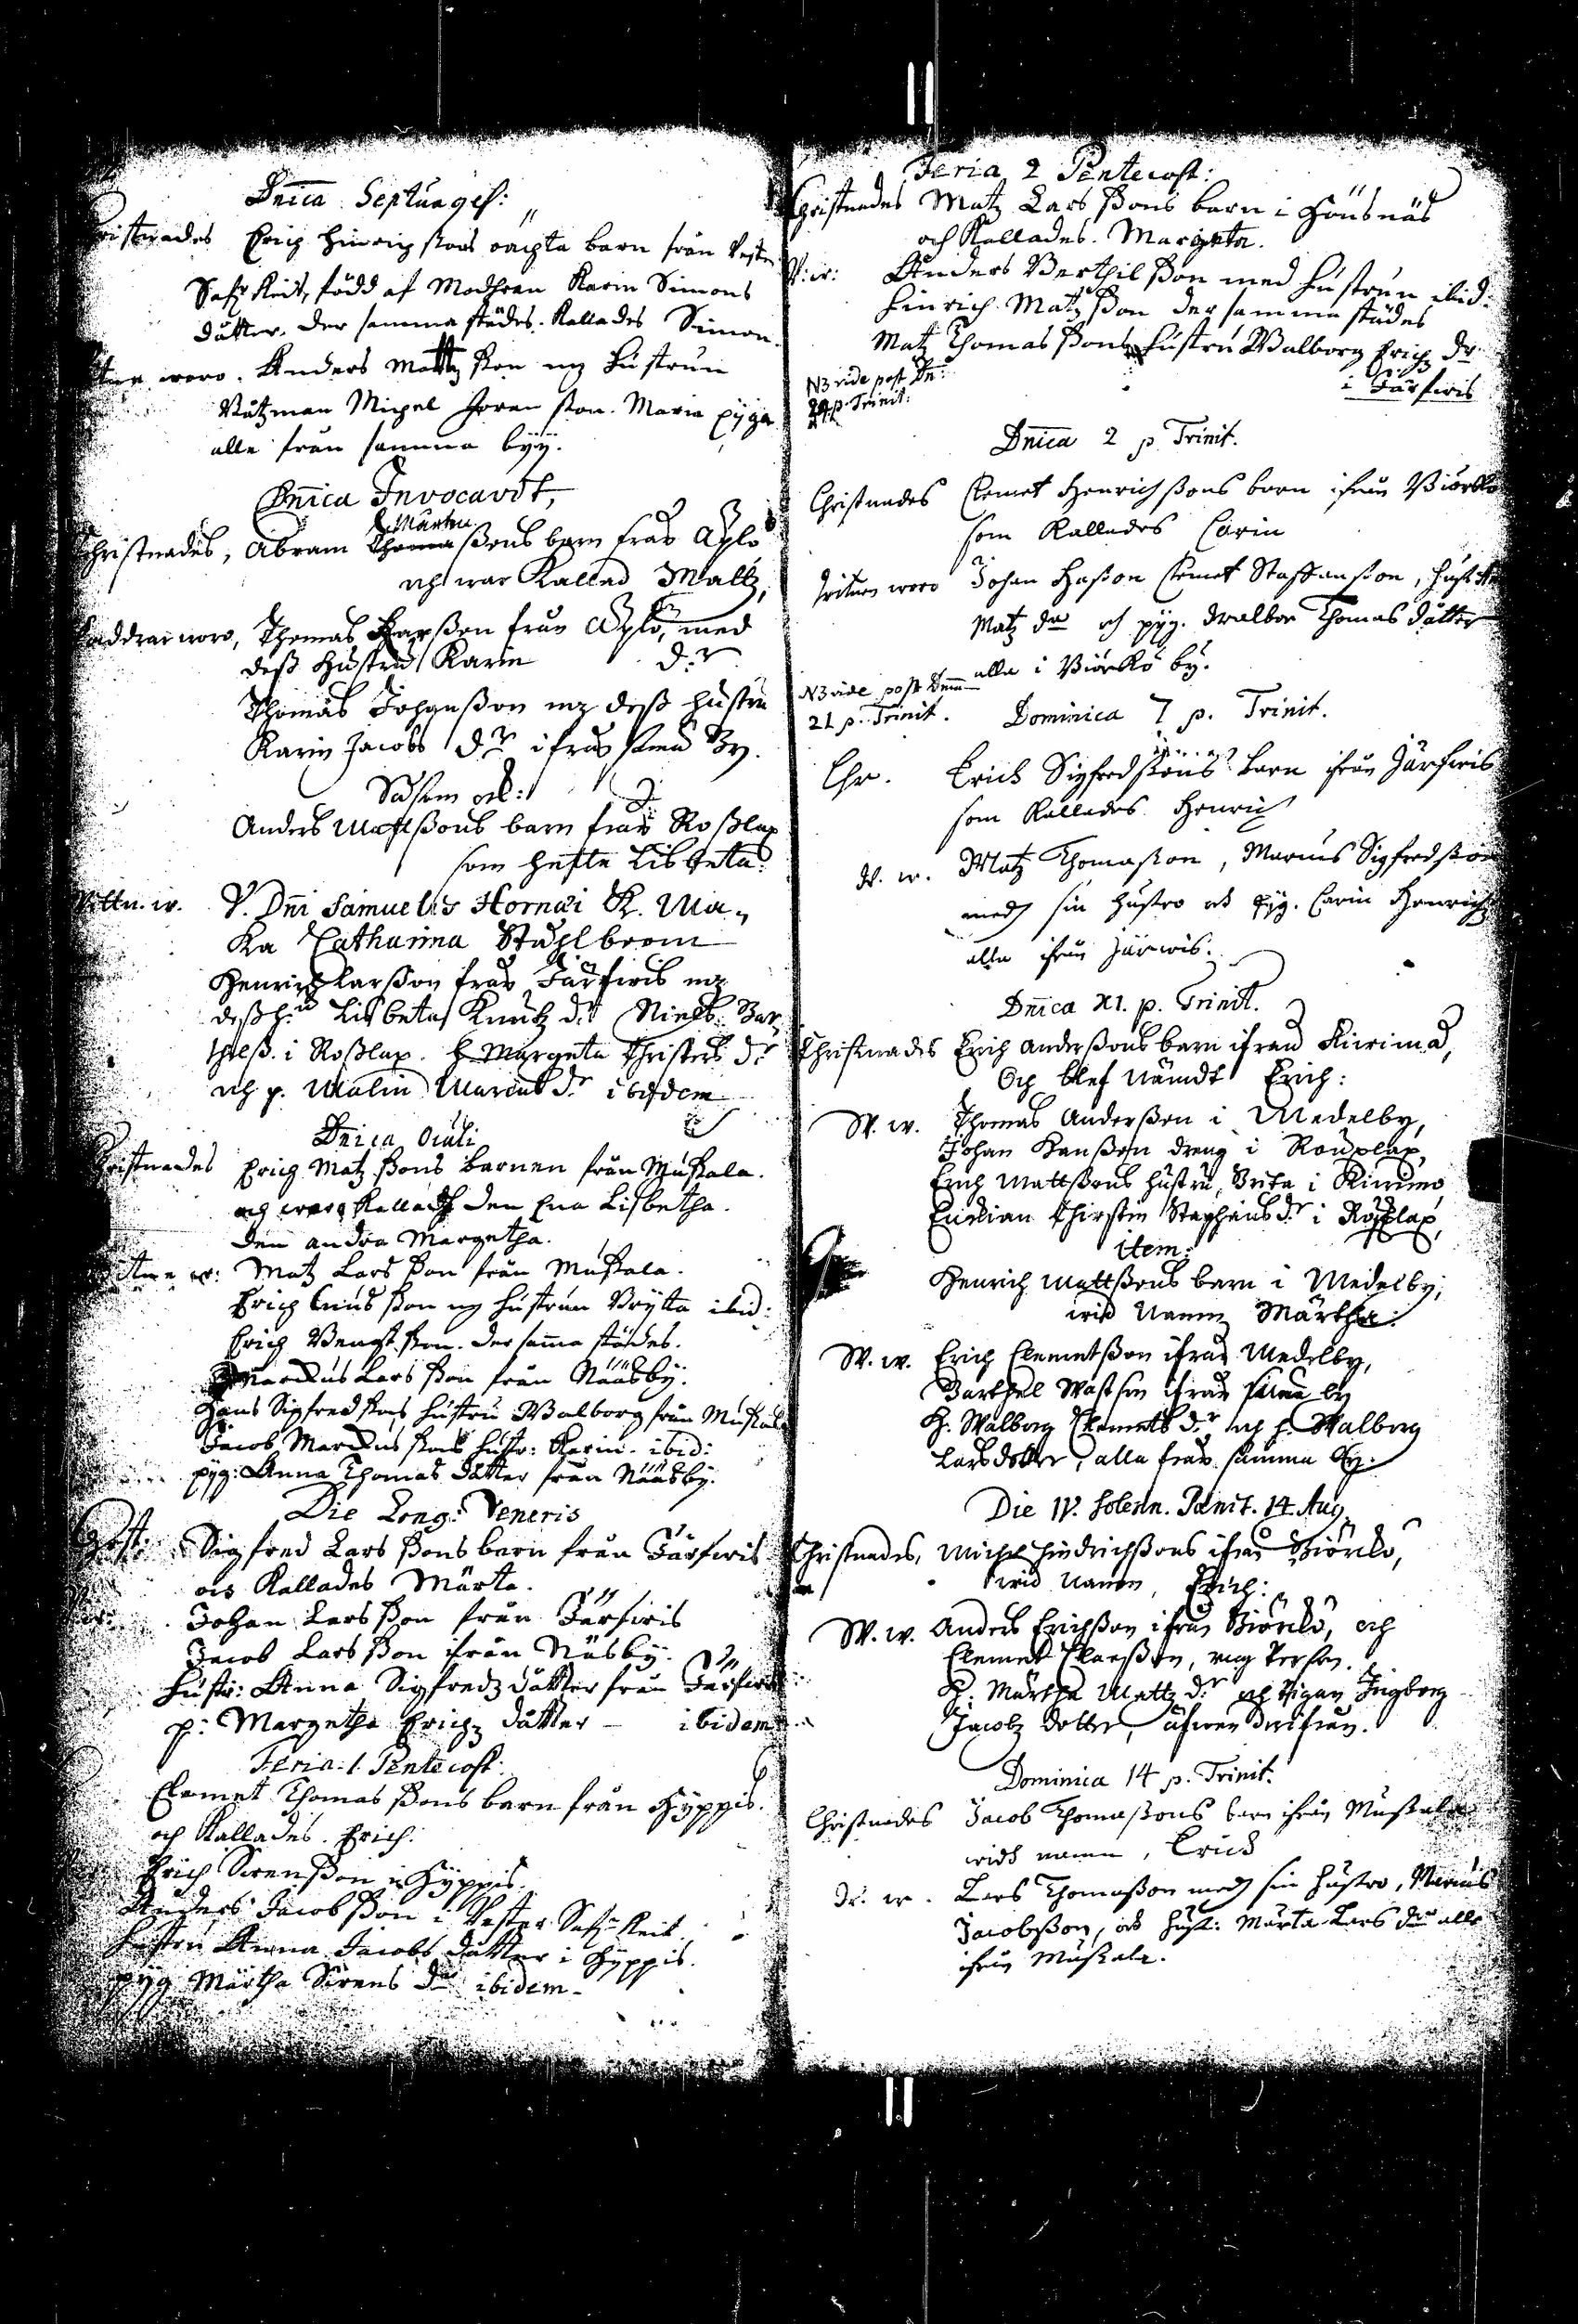 Dnica Septuages:
Christnades Erich Hinrich ßons oächta barn från Vester
Sahkeit, född af Modhren Karin Simons
dåtter. der sammastädes. Kallades Simon.
woro. Anders Mattz ßon mz Hustrun
Båtzman Michel Joran ßon. Maria pijga
alle från samma byÿ.
Dnica Invocavit,
Mårten
Christnades, Abram Thomaßons barn från Aÿlö
och war Kallad Mattz,
Faddrar woro, Thomas ßon från Aÿlö, med
deß Hustru Karin d:r
Thomas Johanßon mz deß hustru
Karin Jacobs d:r ifrån sama By.
Såsom ock:
Anders Mattßons barn från Roßlax
som heste Lisbeta:
Vittn. w. V. Dni Samuelis Hornæi K. Ma-
Ka Catharina Stählbeom
Henrich Larßon från Färsiris mz
deß h:u Lisbeta Knutz d:r Niels Bar
thelß. i Roßlax. H. Margeta Christers d:r
och p. Malin Marcus d:r ibidem
Dnica Oculi
Christnades Erich Matz ßons barnen från Mußala.
och Kallade den Ena Lisbetha.
den andra Margetha.
w: Matz Lars ßon från Mußala.
Erich ßon mz hustrun Brÿta ibid:
Erich Bengt ßon. der samma städes.
Marcus Lars ßon från Nääsbÿ.
Hans Sigfredßons hustru Walborg från Mußala
Jacob Marcus ßons hustr: Karin. ibid:
pijg: Anna Thomas dåtter från Nääsbÿ.
Die Long: Veneris
Chrst: Sigfred Lars ßons barn från Färsiris
ocs Kallades Märta.
Johan Lars ßon från Färsiris
Jacob Lars ßon ifrån Näsbÿ.
Hustr: Anna Sigfredz dåtter från Färsiris
p: Margetha Erichz dåtter — ibidem
Feria 1 Pentecost:
Clemet Thomas ßons barn från Hÿppis.
och Kallades. Erich.
Erich Sirenßon i Hÿppis.
Anders Jacob ßon i Vester Sahkeit.
Hustru Anna Jacobs dåtter i Hÿppis.
pÿg Märtha Sirens d:r ibidem.
Feria 2 Pentecost:
Christnades Matz Lars ßons barn i Hönsnäs
och Kallades. Margeta.
V: w: Anders Berthil ßon med hustrun ibid:
Hinrich Matz ßon der samma städes
Matz Thomas ßons hustru Walborg Erichz d:r
i Färsiris
NB vide post Dn:
p. Trinit:
Dnica 2 p. Trinit.
Christnades Clemet Henrichßons barn ifrån Biörkö
som Kallades Carin
woro Johan Haßon Clemet Staffanßon, hust
Matz d:r och pÿg. Walbor Thomas dåtter
alla i Biörkö by.
NB vide post Dnm
21 p. Trinit. Dominica 7 p. Trinit.
Chr. Erick Sigfredßons barn ifrån Järsiris
som Kallades Henrich
W. w. Matz Thomaßon, Marcus Sigfredßon
medh sin hustro och pÿg. Carin Henrichz
alla ifrån Järwis.
Dnica XI. p. Trinit.
Christnades Erich Anderßons barn ifrån Kiurima,
Och blef Nämdt Erich:
W. w. Thomas Anderßon i Medelby,
Johan Hanßon dreng i Roxlax,
Erich Mattßons hustru, Brita i Kiurimo
Enckian Chirstin Staphans d:r i Roßlax,
item:
Henrich Mattßons barn i Medelby,
wid Namn Märtha:
W. w. Erich Clemetßon ifrån Medelby,
Barthel Matson ifrån sama by
H. Walborg Clemets d:r, och h. Walborg
Larsdotter, alla från samma by.
Die IV. Solenn. Pænit. 14. Aug.
Christnades, Michel Hindrichßons ifrån Biörkö,
wid Namn, Erich:
W. w. Anders Erichßon ifrån Biörkö, och
Clemet Claeßon, ung Person.
H. Märtha Mattz d:r och Pigan Ingborg
Jacobz dotter, äfwen derifrån.
Dominica 14 p. Trinit.
Christnades Jacob Thomaßons barn ifrån Mußala
widh namn, Erick
W. w. Lars Thomaßon medh sin hustro, Marcus
Jacobßon, och hust: Märta Lars d:r alle
ifrån Mußala.